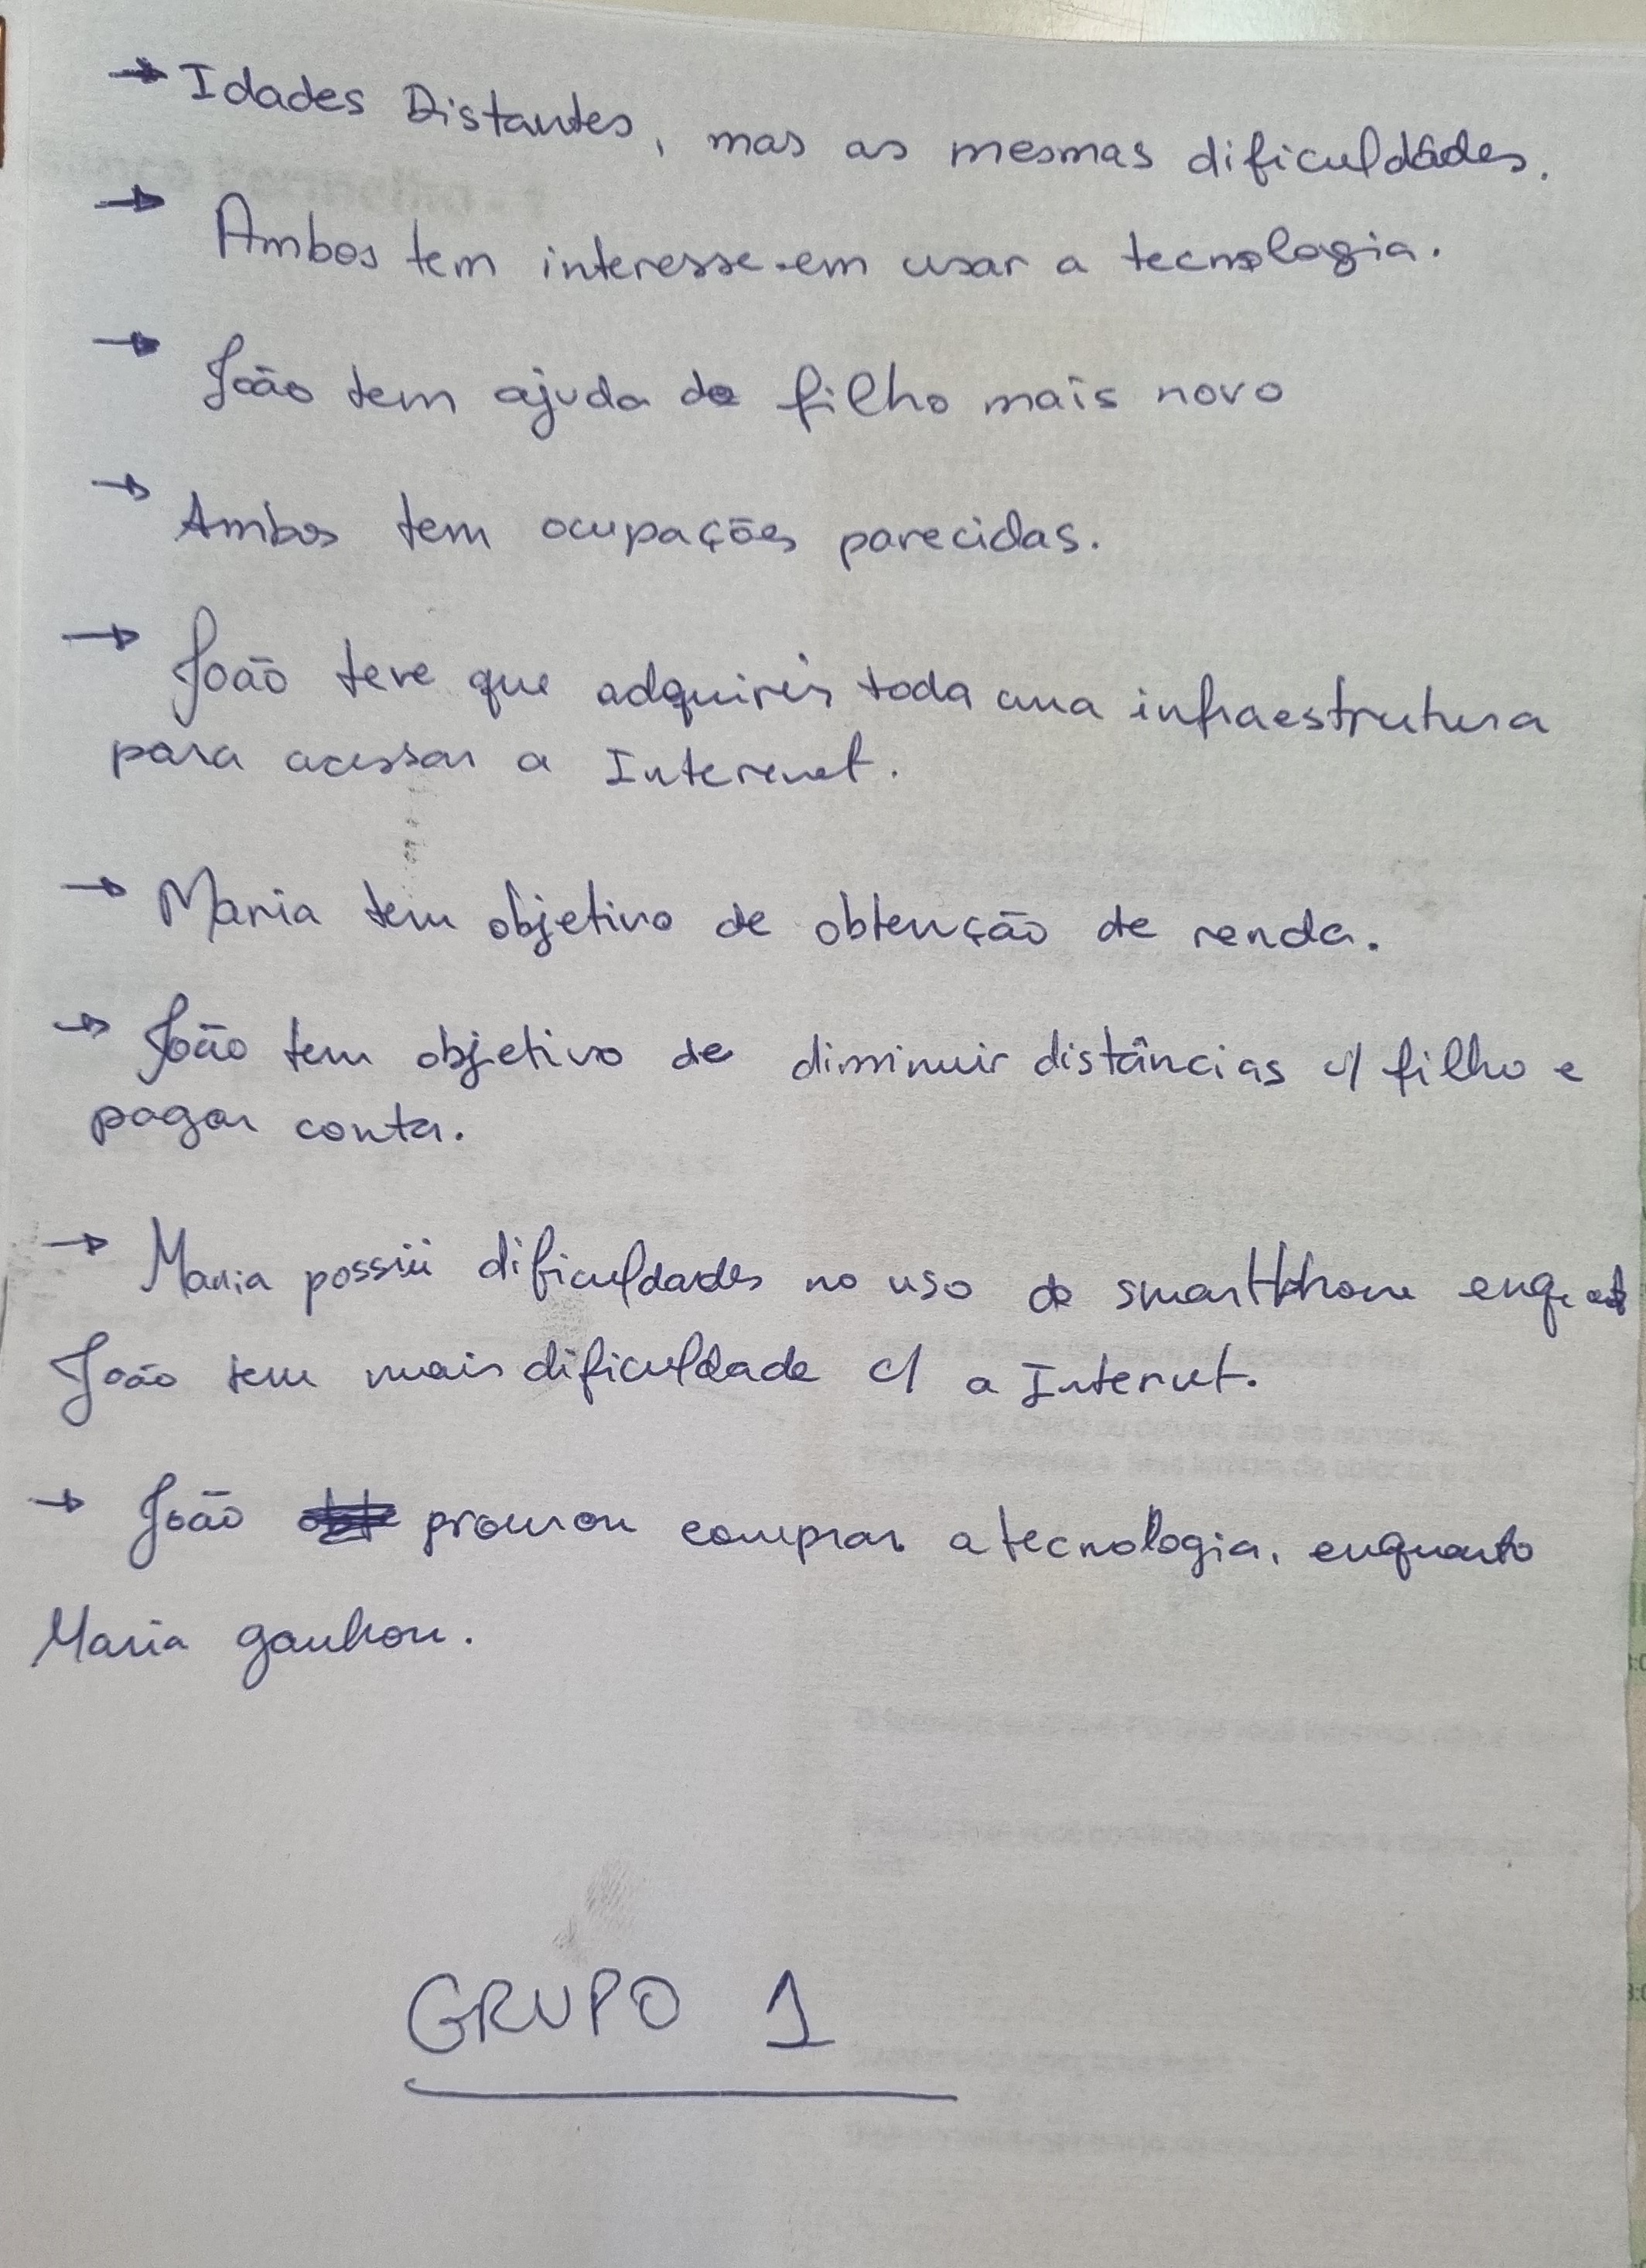 → Idades Distantes, mas as mesmas dificuldades.
→ Ambos tem interesse em usar a tecnologia.
→ João tem ajuda do filho mais novo
→ Ambos tem ocupações parecidas.
→ João teve que adquirir toda uma infraestrutura
para acessar a Interenet.
→ Maria tem objetivo de obtenção de renda.
→ João tem objetivo de diminuir distâncias c/ filho e
pagar conta.
→ Maria possui dificuldades no uso do smartphone
João tem mais dificuldade c/ a Internet.
→ João procurou comprar a tecnologia, enquanto
Maria ganhou.
GRUPO 1